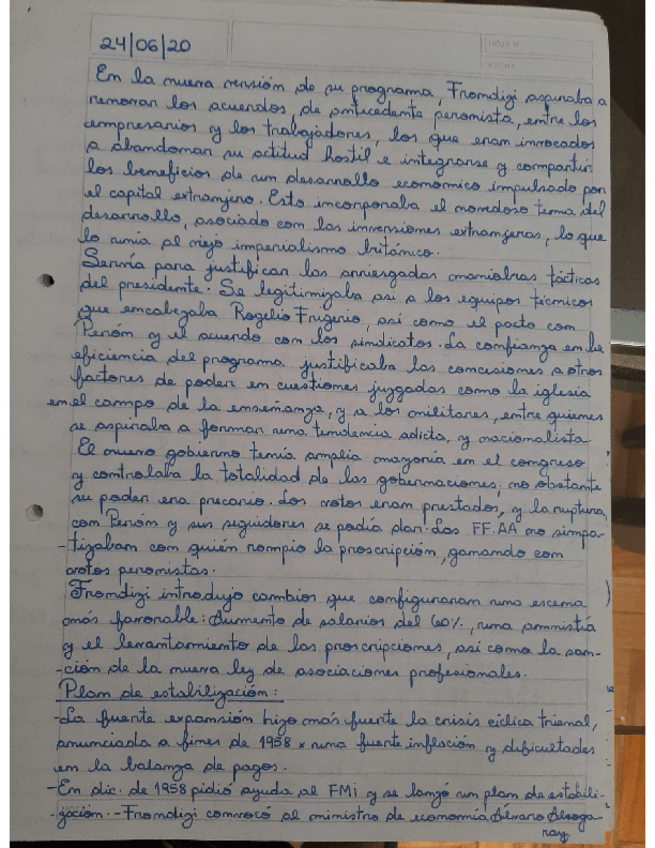 24/06/20
HOJA Nº
FECHA
En la nueva versión de su programa, Frondizi aspiraba a
renovar los acuerdos, de antecedente peronista, entre los
empresarios y los trabajadores, los que eran invocados
a abandonar su actitud hostil e integrarse y compartir
los beneficios de un desarrollo economico impulsado por
el capital extranjero. Esto incorporaba el novedoso tema del
desarrollo, asociado con las inversiones extranjeras, lo que
lo unía al viejo imperialismo británico.
Servía para justificar las arriesgadas maniobras tácticas
del presidente. Se legitimizaba asi a los equipos técnicos
que encabezaba Rogelio Frigerio, asi como el pacto con
Perón y el acuerdo con los sindicatos. La confianza en la
eficiencia del programa justificaba las concesiones a otros
factores de poder en cuestiones juzgadas como la iglesia
en el campo de la enseñanza, y a los militares, entre quienes
se aspiraba a formar una tendencia adicta, y nacionalista
El nuevo gobierno tenía amplia mayoría en el congreso
y controlaba la totalidad de las gobernaciones; no obstante
su poder era precario. Los votos eran prestados, y la ruptura
con Perón y sus seguidores se podía dar. Las FF.AA no simpa-
-tizaban con quién rompio la proscripción, ganando con
votos peronistas.
Frondizi introdujo cambios que configuraran una escena
más favorable: Aumento de salarios del 60%, una amnistía
y el levantamiento de las proscripciones, asi como la san-
-ción de la nueva ley de asociaciones profesionales.
Plan de estabilización:
-La fuerte expansión hizo más fuerte la crisis cíclica trienal,
anunciada a fines de 1958 x una fuente inflación y dificultades
en la balanza de pagos.
-En dic. de 1958 pidió ayuda al FMi y se lanzó un plan de estabili-
-zación. - Frondizi convocó al ministro de economía Álvaro Alsoga-
ray